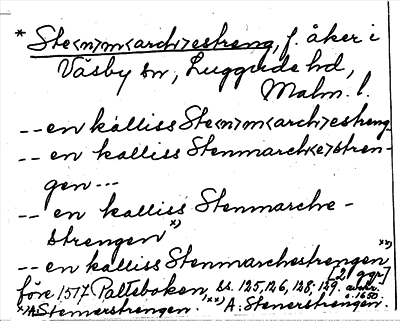 * Ste<n>m<arch>estreng, f. åker i
Väsby sn, Luggude hd,
Malm. l.
-- en kalliss Ste<n>m<arch>estreng
-- en kalliss Stenmarch<e>stren-
gen ---
-- en kalliss Stenmarche-
strengen x)
-- en kalliss Stenmarchestrengen xx)
[2 ggr]
före 1517 Palteboken, ss. 125, 126, 128, 129. avskr.
c. 1650.
x) A: Stemerstrengen. xx) A: Stenerstrengen.